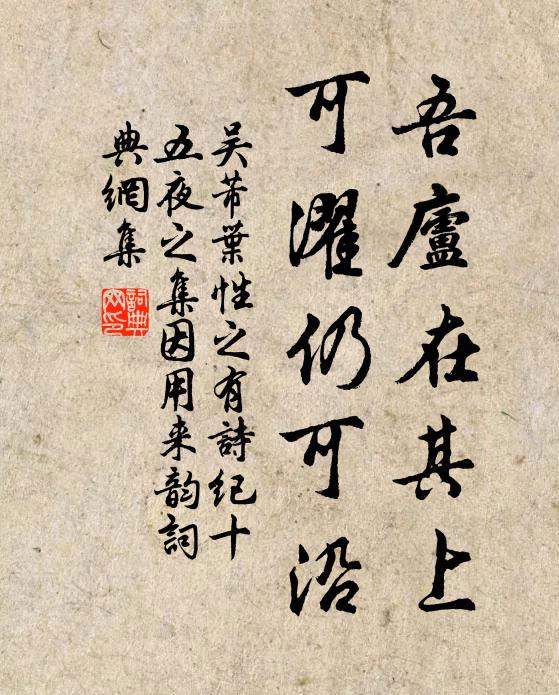 吾廬在其上
可濯仍可沿
吴芾葉性之有詩紀十
五夜之集因用来韵詞
典網集
詞典網印